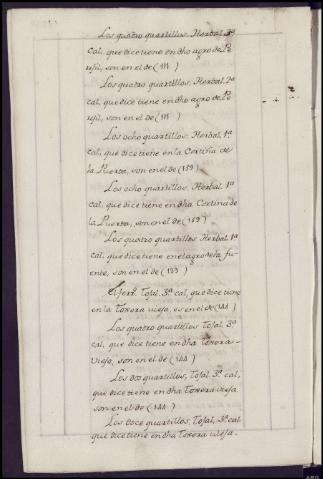 Los quatro quartillos, Herbal 3ª
cal, que dice tiene en dho agro de Pe
reſil, son en el de (111)
Los quatro quartillos, Herbal, 2ª
cal, que dice tiene en dho agro de Pe
reſil, son en el de (111)
Los ocho quartillos, Herbal, 1ª
cal, que dice tiene en la Cortiña de
la Puerta, son en el de (159)
Los ocho quartillos, Herbal, 1ª
cal, que dice tiene en dha Cortina de
la Puerta, son en el de (159)
Los quatro quartillos, Herbal 1ª
cal, que dice tiene en el agro de la fu-
ente, son en el de (133)
Tojal, 3ª cal, que dice tiene
en la Torrera vieja, es en el de (144)
Los quatro quartillos, Tojal, 3ª
cal, que dice tiene en dha Torrera-
vieja, son en el de (144)
Los dos quartillos, Tojal, 3ª cal,
que dice tiene en dha Torrera vieja
son en el de (144)
Los doce quartillos, Tojal, 3ª cal
que dice tiene en dha Torrera vieja.